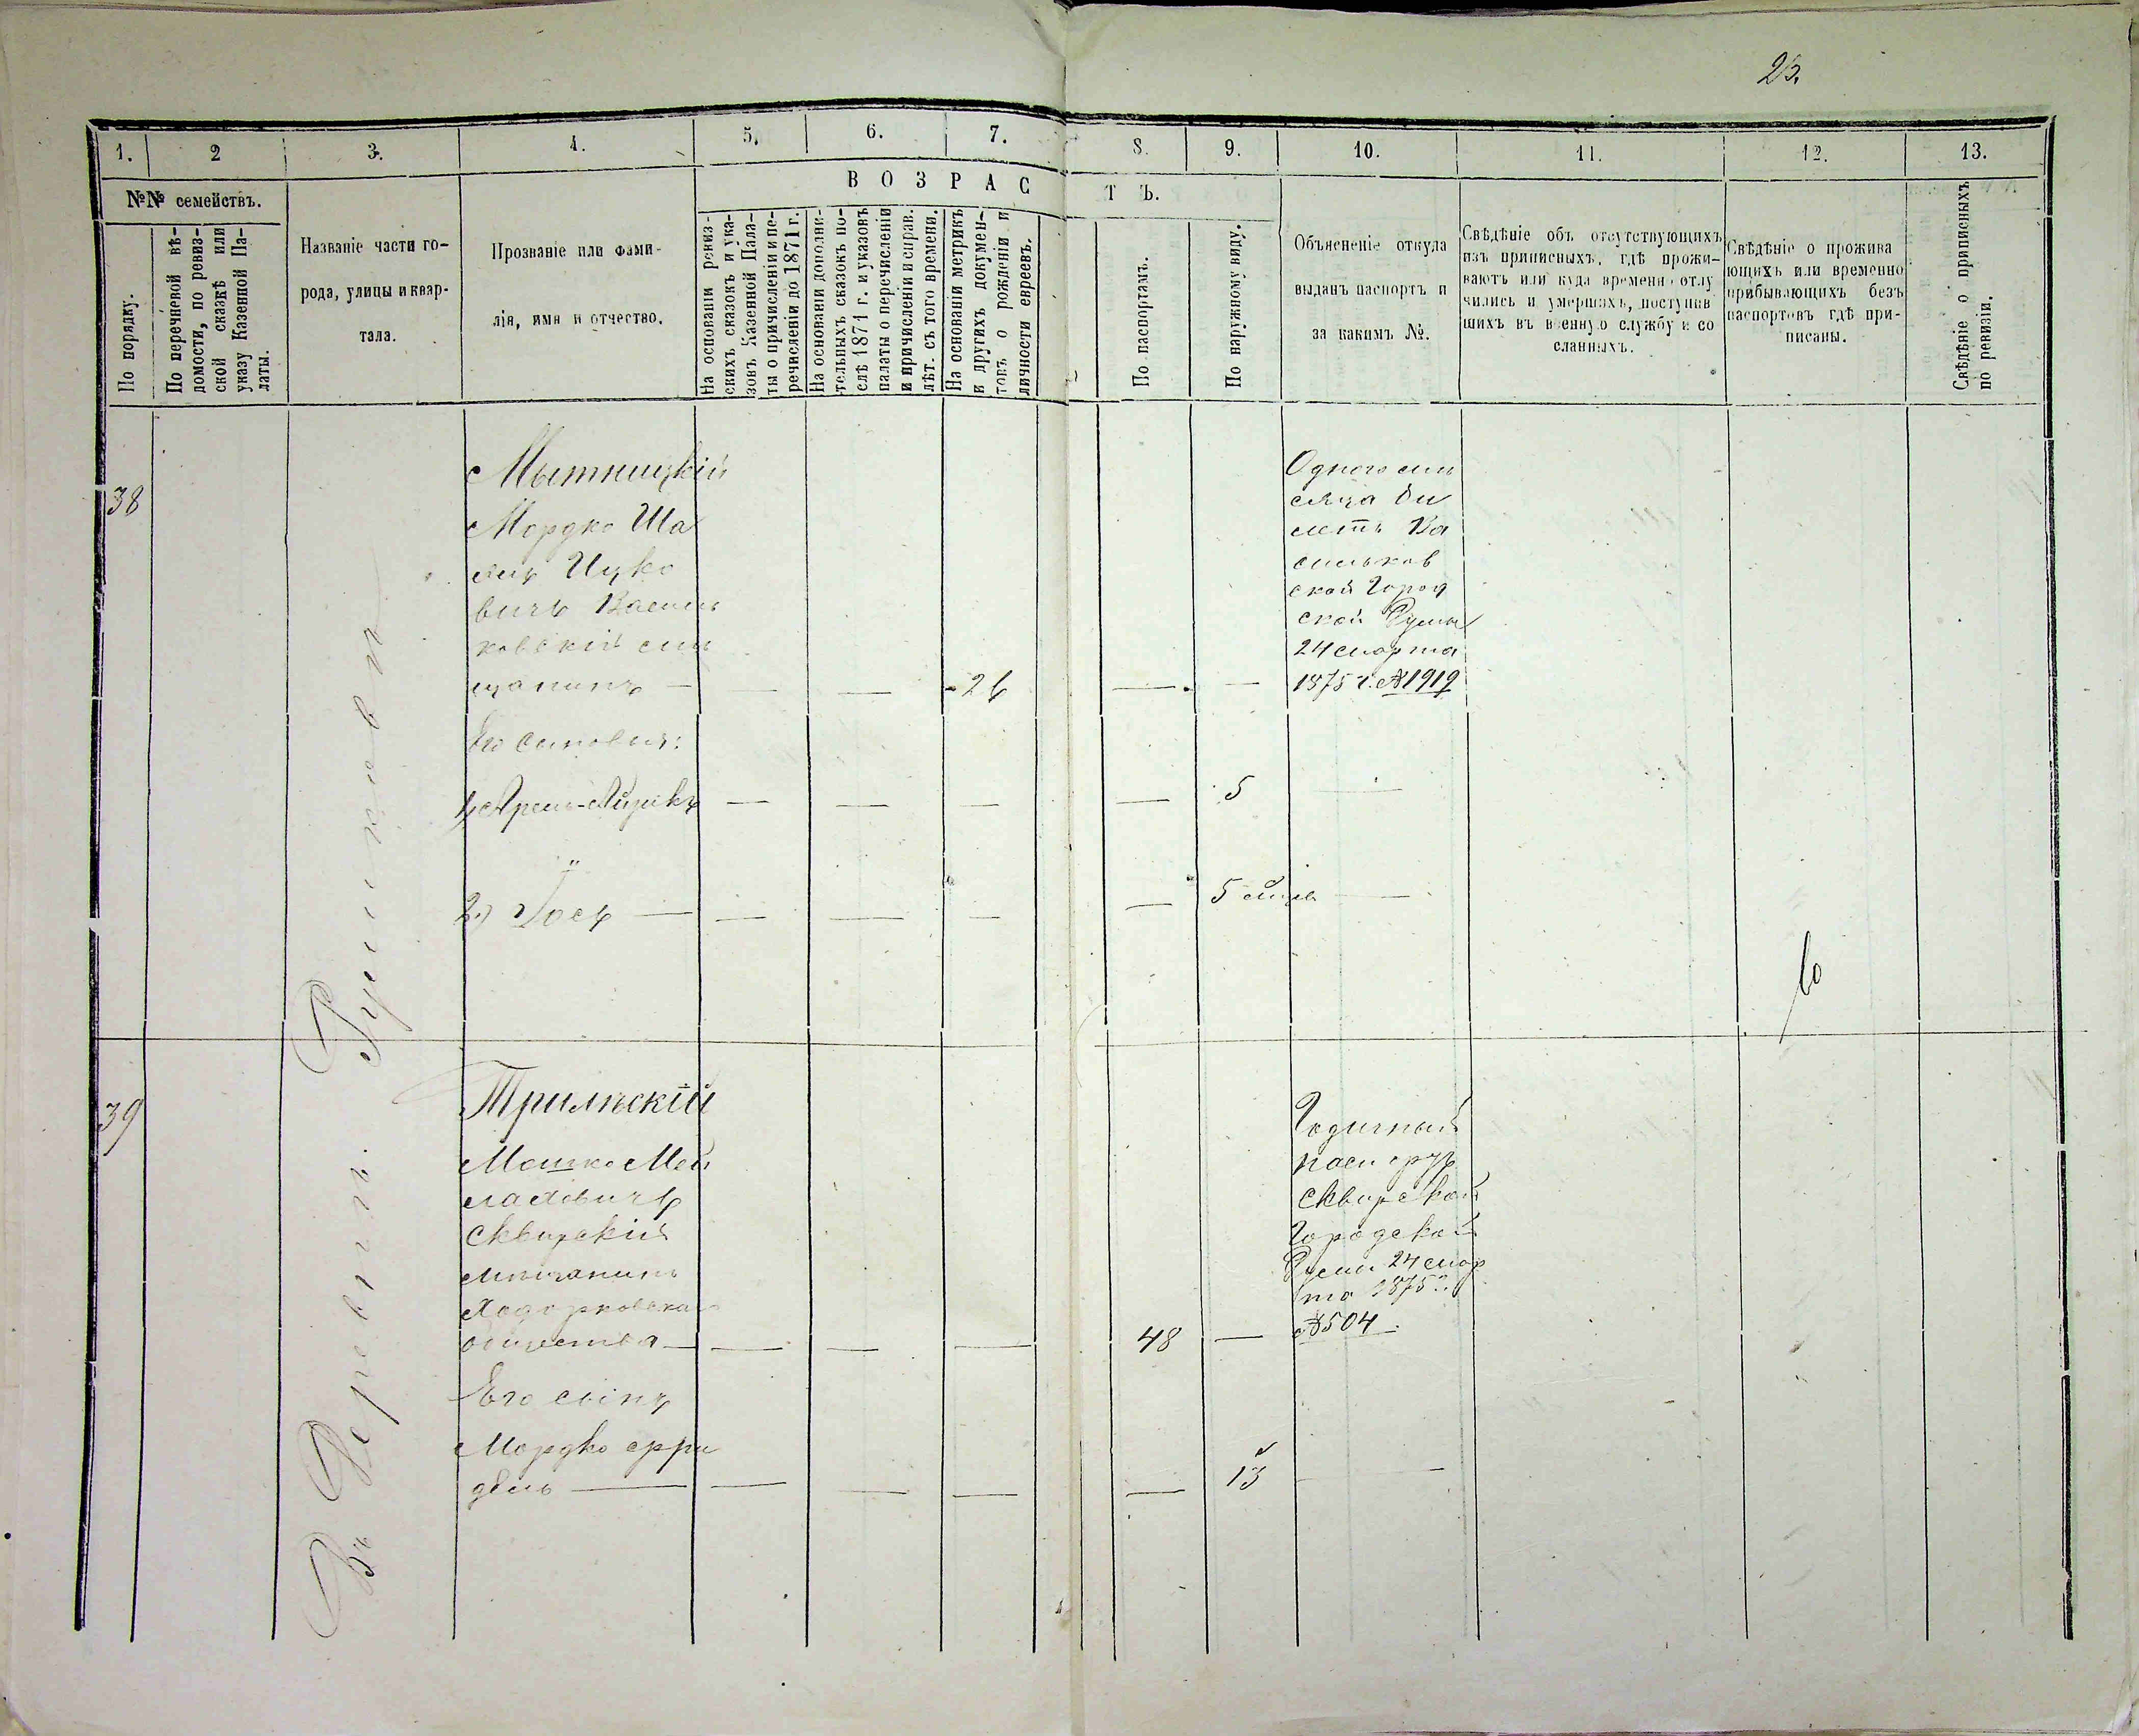 23.
1.
2
3.
4.
5.
6.
7.
8.
9.
10.
11.
12.
13.
№№ семействъ.
ВОЗРАСТЪ.
По порядку.
По перечневой вѣ-
домости, по ревиз-
ской сказкѣ или
указу Казенной Па-
латы.
Названіе части го-
рода, улицы и квар-
тала.
Прозваніе или фами-
лія, имя и отчество.
На основаніи ревиз-
скихъ сказокъ и ука-
зовъ Казенной Пала-
ты о причисленіи и пе-
речисленіи до 1871 г.
На основаніи дополни-
тельныхъ сказокъ по-
слѣ 1871 г. и указовъ
палаты о перечисленіи
и причисленіи и справ.
лѣт. съ того времени.
На основаніи метрикъ
и другихъ докумен-
товъ о рожденіи и
личности евреевъ.
По паспортамъ.
По наружному виду.
Объясненіе откуда
выданъ паспортъ и
за какимъ №.
Свѣдѣніе объ отсутствующихъ
изъ приписныхъ, гдѣ прожи-
ваютъ или куда временно отлу
чились и умершихъ, поступив
шихъ въ военную службу и со
сланныхъ.
Свѣдѣніе о прожива
ющихъ или временно
прибывающихъ безъ
паспортовъ гдѣ при-
писаны.
Свѣдѣніе о приписныхъ
по ревизіи.
Въ Деревни
38
Мытницкій
Мордко Ша
Ицко
вичъ Василь
ковскій мѣ
щанинъ — — — 26 — —
Одного мѣ
сяца би
летъ Ва
сильков
ской Город
ской Думы
24 марта
1875 г. №1919
Его сыновья:
1) — — — — 5 —
2.) Іось — — — — — 5 мѣс —
39
Трилѣскій
Мошко
Сквирскій
мѣщанинъ
Ходорковска
общества — — — — 48 —
Годичный
Сквирской
Городской
Думы 24 мар
та 1875 г.
№504.
Его сынъ
Мордко Фри
дель — — — — — 13 —